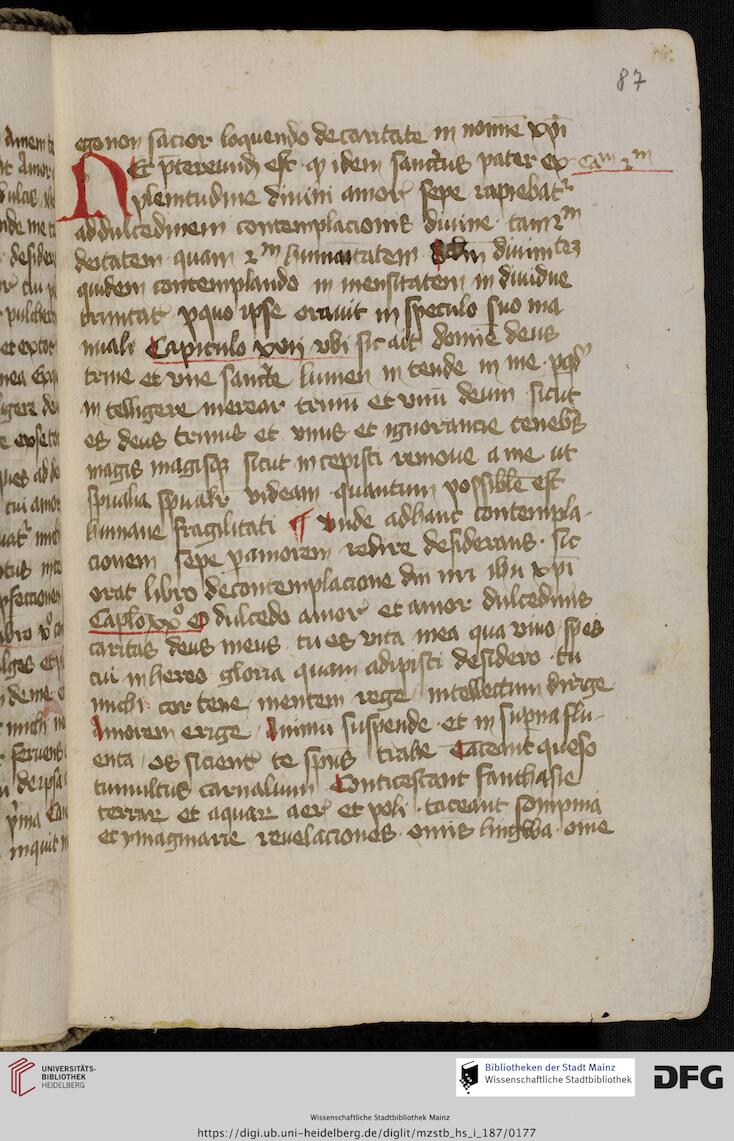 87
ego non sacior loquendo de caritate in nomine xpi
Nec p̄tereund est q idem sanctus pater ex Cam 2m
plenitudine divini amor sepe rapiebatr
ad dulcedinem contemplacionis divine · tam 2m
deitatem · quam 2m humanitatem divinitez
quidem contemplando in mensitatem in dividue
trinitat pquo ipse oravit in speculo suo ma
nuali Capitulo xviij ubi sic ait domine deus
trine et vne sancte lumen in tende in me · pqd
in telligere merear trinū et vnū deum sicut
es deus trinus et vnus et ignorancie tenebr̄s
magis magisqz sicut incepisti remove a me ut
spūalia spūalr videam quantum possibile est
humane fragilitati ¶ vnde ad hanc contempla-
cionem sepe pamorem redire desiderans · sic
orat libro de contemplacione dni nri ihu xpi
Caplo xxo O dulcedo amor et amor dulcedinis
caritas deus meus · tu es vita mea qua vivo spes
cui inhereo gloria quam adipisci desidero · tu
michi cor tene mentem rege intellectum dirige
Amorem erige Animū suspende · et in supna flu-
enta os sicient te spūs trahe Taceant queso
tumultus carnalium Conticescant fanthasie
terrar et aquar aer et poli · taceant sompnia
et ymaginarie revelaciones · omīs lingwa · ome
UNIVERSITÄTS-
BIBLIOTHEK
HEIDELBERG
Bibliotheken der Stadt Mainz
Wissenschaftliche Stadtbibliothek
DFG
Wissenschaftliche Stadtbibliothek Mainz
https://digi.ub.uni-heidelberg.de/diglit/mzstb_hs_i_187/0177